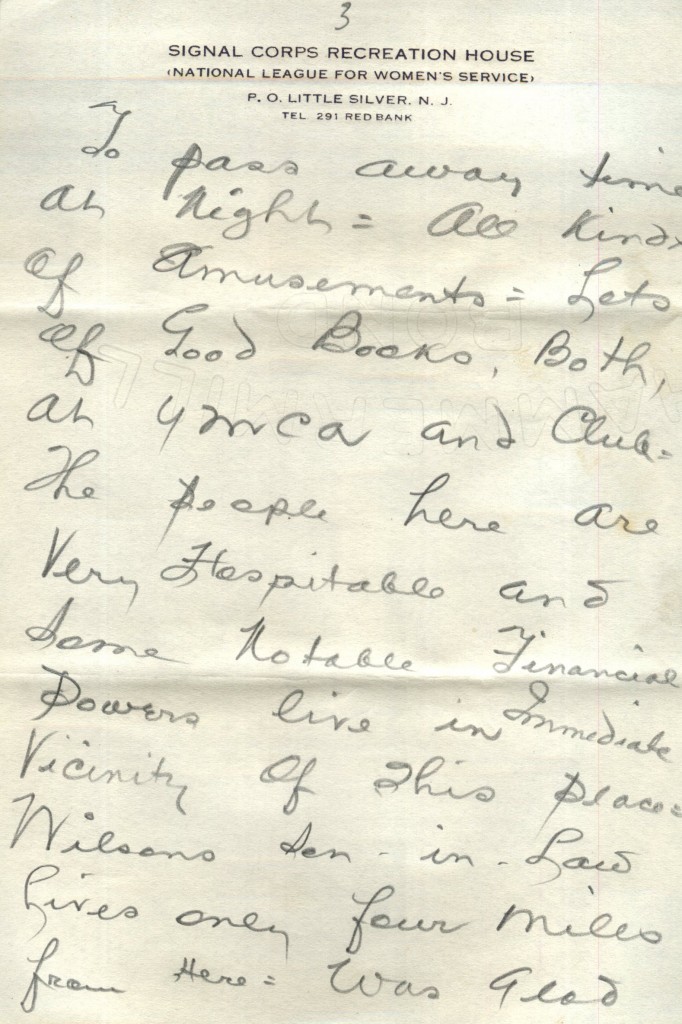 3
SIGNAL CORPS RECREATION HOUSE
(NATIONAL LEAGUE FOR WOMEN'S SERVICE)
P. O. LITTLE SILVER, N. J.
TEL 291 RED BANK
To pass away time
at Night = All Kinds
Of Amusements = Lots
Of Good Books, Both,
at YMCA and Club =
The people here are
Very Hospitable and
Some Notable Financial
Powers live in Immediate
Vicinity Of This place =
Wilsons Son - in - Law
Lives only four Miles
from Here = Was Glad